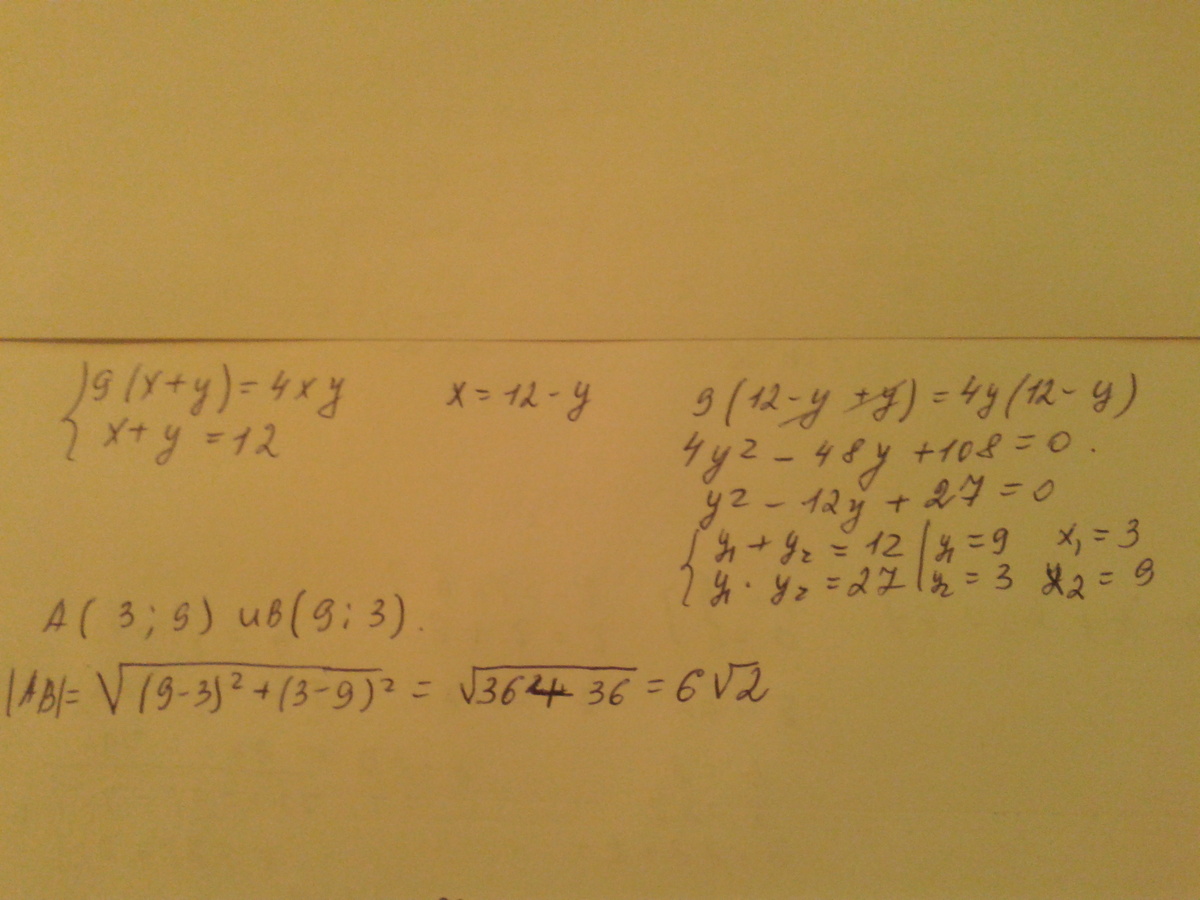 { 9(x+y)=4xy    x=12-y    9(12-y+y)=4y(12-y)
x+y=12
4y²-48y+108=0.
y²-12y+27=0
{ y₁+y₂=12 | y₁=9  x₁=3
y₁·y₂=27 | y₂=3  x₂=9
A(3;9) и B(9;3).
|AB|=√((9-3)²+(3-9)²)=√(36+36)=6√2